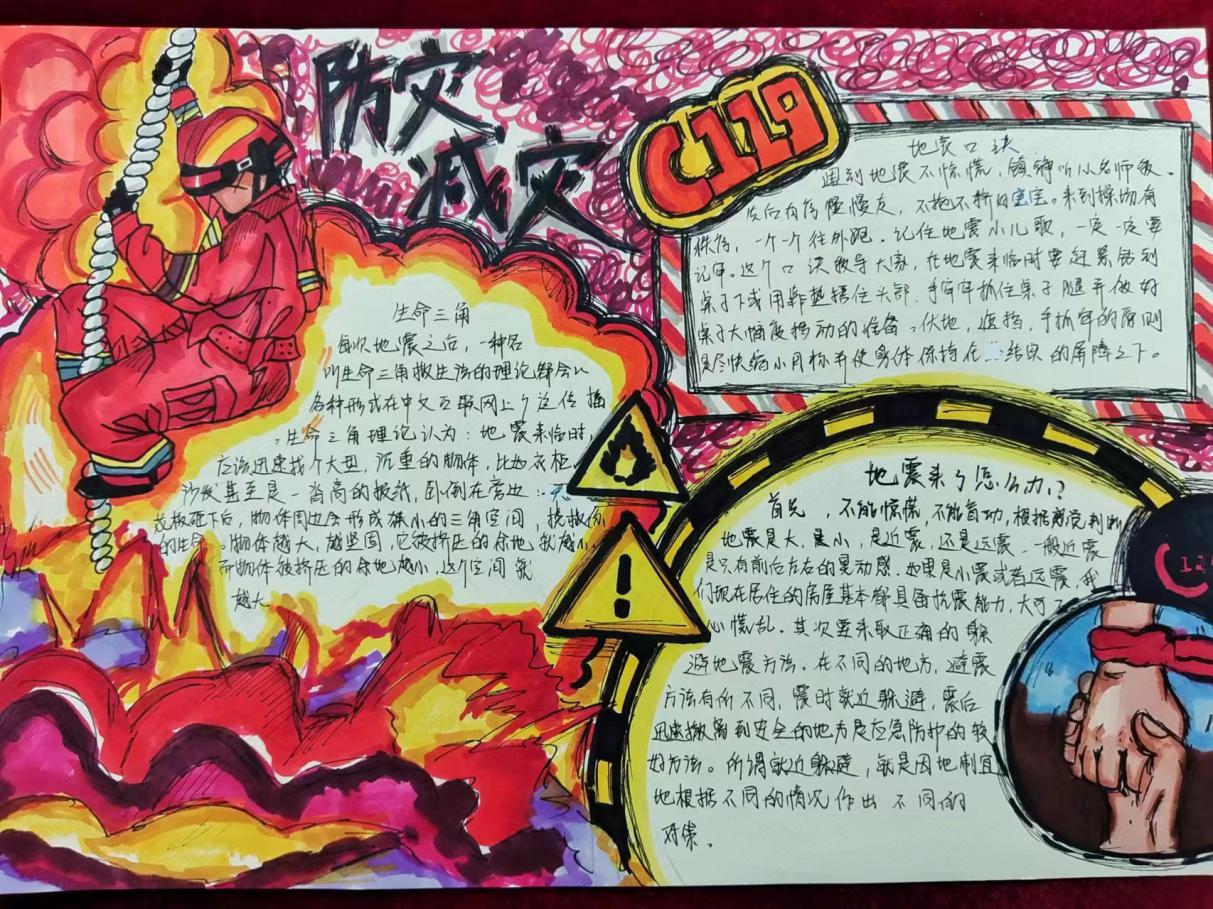 防灾
减灾
119
地震口诀
遇到地震不惊慌，镇静听从老师教。
先后有序慢慢走，不拖不挤因宝宝。来到操场有
秩序，一个一个往外跑。记住地震小儿歌，一定一定要
记牢。这个口诀教导大家，在地震来临时要赶紧钻到
桌子下或用软垫捂住头部，手牢牢抓住桌子腿并做好
桌子大幅度移动的准备。伏地，遮挡，手抓牢的原则
是尽快缩小目标并使身体保持在结实的屏障之下。
生命三角
每次地震之后，一种名
叫生命三角救生法的理论都会以
各种形式在中文互联网上广泛传播
。生命三角理论认为：地震来临时，
应该迅速找个大型，沉重的物体，比如衣柜、
沙发甚至是一沓高的报纸，卧倒在旁边
板砸下后，物体周边会形成狭小的三角空间，挽救你
的生命。物体越大，越坚固，它被挤压的余地就越小，
而物体被挤压的余地越小，这个空间就
越大
地震来了怎么办？
首先，不能惊慌，不能盲动，根据感觉判断
地震是大、是小，是近震，还是远震。一般近震
是只有前后左右的晃动感。如果是小震或者远震，我
们现在居住的房屋基本都具备抗震能力，大可不
心慌乱。其次要采取正确的躲
避地震方法。在不同的地方，避震
方法有所不同，震时就近躲避，震后
迅速撤离到安全的地方是应急防护的较
好方法。所谓就近躲避，就是因地制宜
地根据不同的情况作出不同的
对策。